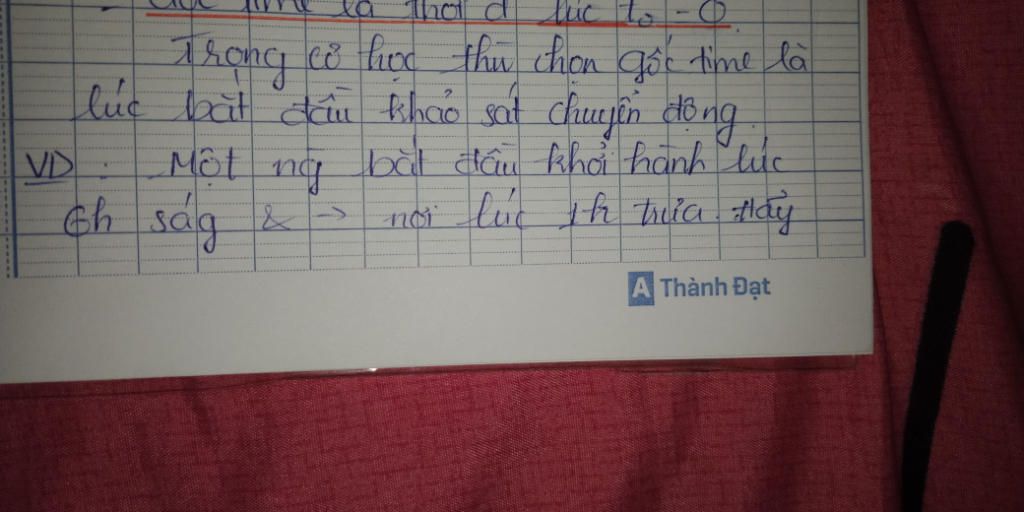 - Gốc time là thời đ lúc t₀ = 0
Trong cơ học thư chọn gốc time là
lúc bắt đầu khảo sát chuyển động.
VD : Một ng bắt đầu khởi hành lúc
6h ság & → nơi lúc 1h trưa. Hãy
A Thành Đạt